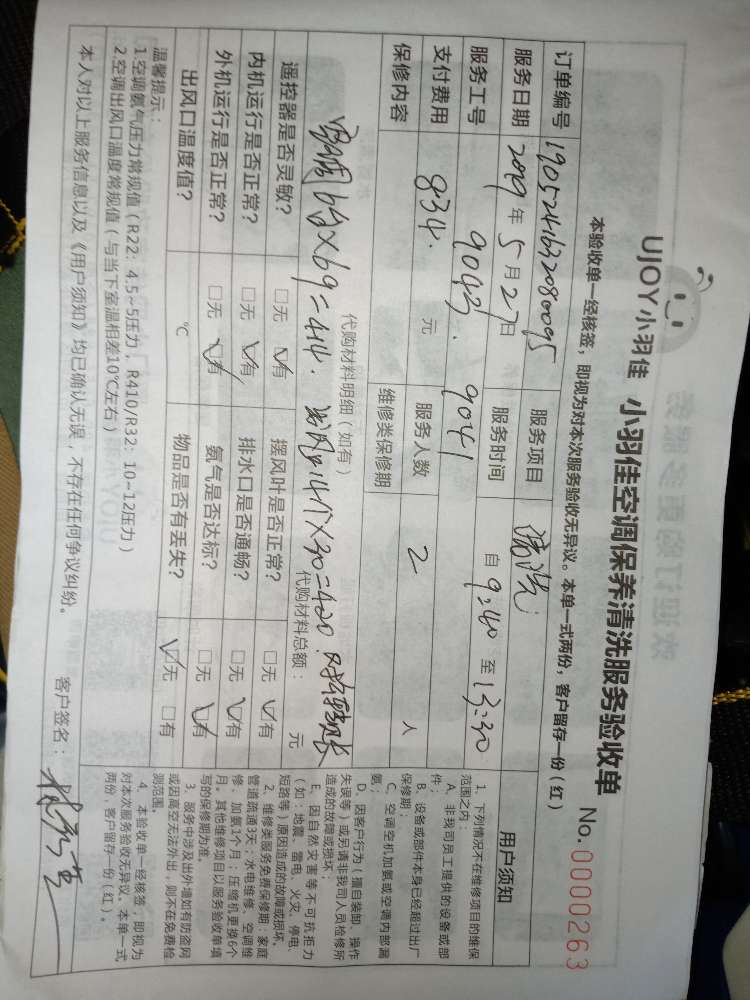 UJOY小羽佳 小羽佳空调保养清洗服务验收单
No.0000263
本验收单一经核签，即视为对本次服务验收无异议。本单一式两份，客户留存一份（红）
订单编号 19052416320800095 服务项目 清洗
服务日期 2019年5月27日 服务时间 自9:40至13:30
服务工号 9043. 9041
支付费用 834. 元 服务人数 2 人
保修内容 维修类保修期
代购材料明细（如有）
代购材料总额： 元
6台×69=414. 14个×30=420.
遥控器是否灵敏？ □无 ☑有 摆风叶是否正常？ □无 ☑有
内机运行是否正常？ □无 ☑有 排水口是否通畅？ □无 ☑有
外机运行是否正常？ □无 ☑有 氨气是否达标？ □无 ☑有
出风口温度值？ ℃ 物品是否有丢失？ ☑无 □有
温馨提示：
1.空调氨气压力常规值（R22：4.5~5压力，R410/R32：10~12压力）
2.空调出风口温度常规值（与当下室温相差10℃左右）
本人对以上服务信息以及《用户须知》均已确认无误，不存在任何争议纠纷。
客户签名：
用户须知
1、下列情况不在维修项目的维保
范围之内：
A、非我司员工提供的设备或部
件；
B、设备或部件本身已经超过出厂
保修期；
C、空调空机加氨或空调内部漏
氨；
D、因客户行为（擅自装卸、操作
失误等）或另请非我司人员检修所
造成的故障或损坏；
E、因自然灾害等不可抗拒力
（如：地震、雷电、火灾、停电、
短路等）原因造成的故障或损坏。
2、维修类服务免费保修期：家庭
管道疏通3天；水电维修、空调维
修、加氨1个月；压缩机更换6个
月。其他维修项目以服务验收单填
写的保修期为准。
3、服务中涉及出外墙如有防盗网
或因高空无法外出，则不在免费检
测范围。
4、本验收单一经核签，即视为
对本次服务验收无异议。本单一式
两份，客户留存一份（红）。